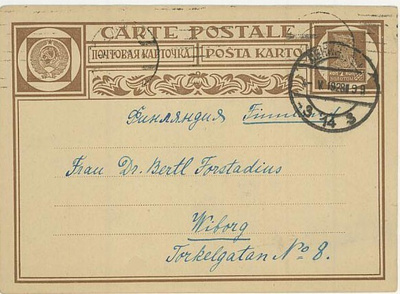 CARTE POSTALE
ПОЧТОВАЯ КАРТОЧКА POŜTA KARTO
Финляндия Finnland
Frau Dr. Bertl Forstadius
Wiborg
Torkelgatan No 8.